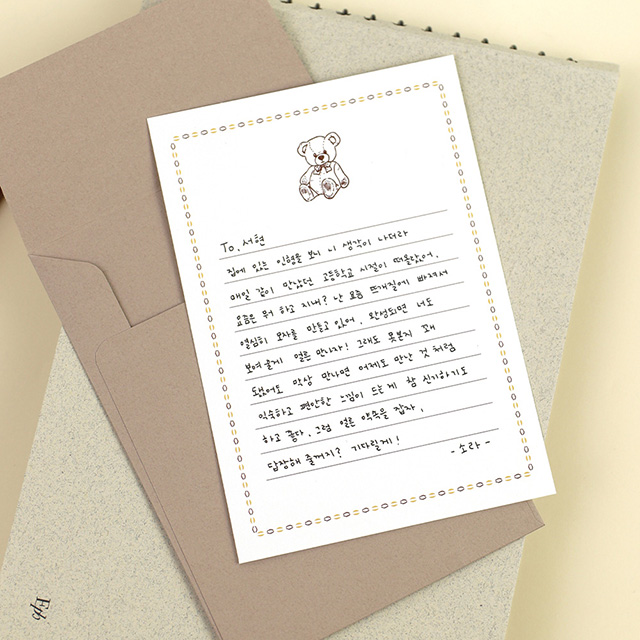 To. 서현
집에 있는 인형을 보니 니 생각이 나더라
매일 같이 만났던 고등학교 시절이 떠올랐어.
요즘은 뭐 하고 지내? 난 요즘 뜨개질에 빠져서
열심히 모자를 만들고 있어. 완성되면 너도
보여 줄게 얼른 만나자! 그래도 못본지 꽤
됐어도 막상 만나면 어제도 만난 것 처럼
익숙하고 편안한 느낌이 드는 게 참 신기하기도
하고 좋다. 그럼 얼른 약속을 잡자.
답장해 줄꺼지? 기다릴게!
- 소라 -
Epb